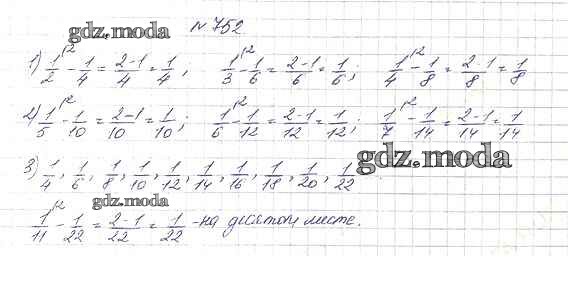 gdz.moda
№752
1) 1/2^{\2} - 1/4 = (2-1)/4 = 1/4; 1/3^{\2} - 1/6 = (2-1)/6 = 1/6; 1/4^{\2} - 1/8 = (2-1)/8 = 1/8
2) 1/5^{\2} - 1/10 = (2-1)/10 = 1/10; 1/6^{\2} - 1/12 = (2-1)/12 = 1/12; 1/7^{\2} - 1/14 = (2-1)/14 = 1/14
gdz.moda
3) 1/4, 1/6, 1/8, 1/10, 1/12, 1/14, 1/16, 1/18, 1/20, 1/22
gdz.moda
1/11^{\2} - 1/22 = (2-1)/22 = 1/22 - на десятом месте.